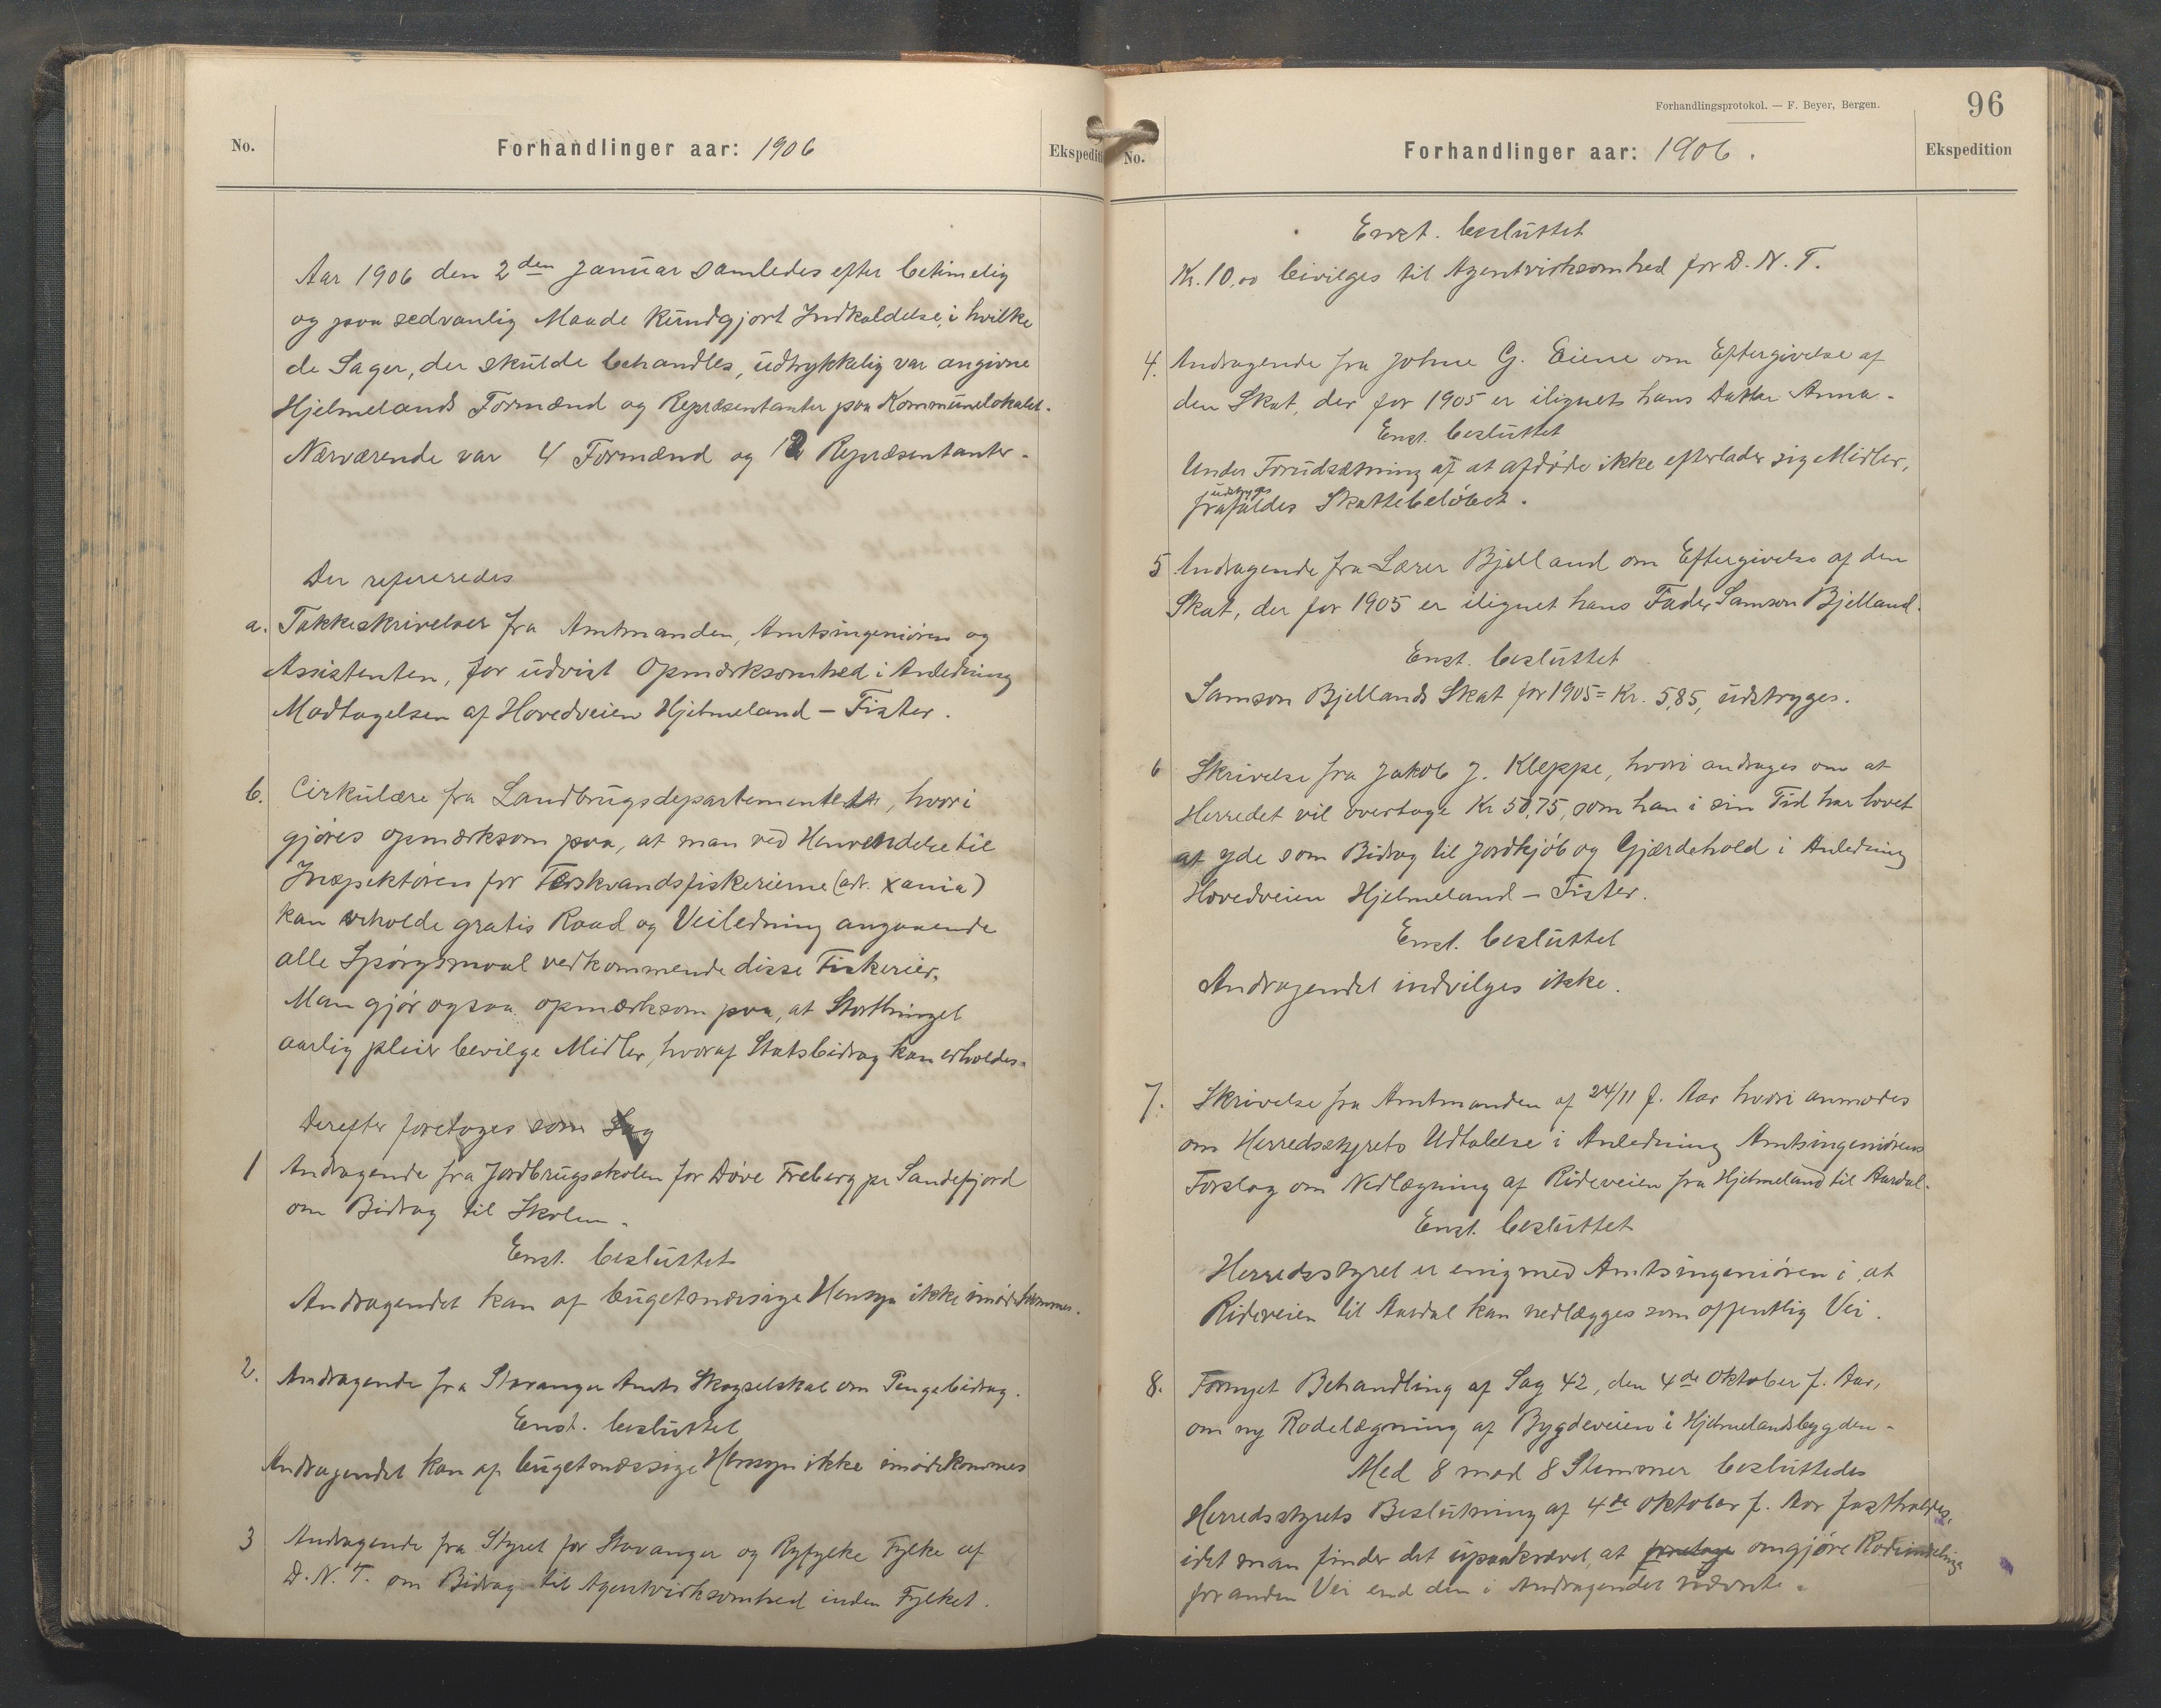 No.
Forhandlinger aar: 1906
Ekspediti
Aar 1906 den 2den Januar samledes efter betimelig
og paa sedvanlig Maade kundgjort Indkaldelse, i hvilke
de Sager, der skulde behandles, udtrykkelig var angivne
Hjelmelands Formænd og Repræsentanter paa Kommunelokalet.
Nærværende var 4 Formænd og 12 Repræsentanter.
Der refereredes
a. Takkeskrivelser fra Amtmanden, Amtsingeniören og
Assistenten, for udvist Opmærksomhed i Anledning
Modtagelsen af Hovedveien Hjelmeland – Fister.
b. Cirkulære fra Landbrugsdepartementet, hvori
gjöres opmærksom paa, at man ved Henvendelse til
Inspektören for Ferskvandsfiskerierne (adr. Xania)
kan erholde gratis Raad og Veiledning angaaende
alle Spörgsmaal vedkommende disse Fiskerier.
Man gjör ogsaa opmærksom paa, at Storthinget
aarlig pleier bevilge Midler, hvoraf Statsbidrag kan erholdes.
Derefter foretoges som Sag
1 Andragende fra Jordbrugsskolen for Döve Freberg pr Sandefjord
om Bidrag til Skolen.
Enst. besluttet
Andragendet kan af bugetmæssige Hensyn ikke imödekommes.
2. Andragende fra Stavanger Amts Skogselskab om Pengebidrag.
Enst. besluttet
Andragendet kan af bugetmæssige Hensyn ikke imödekommes
3 Andragende fra Styret for Stavanger og Ryfylke Fylke af
D. N. T. om Bidrag til Agentvirksomhed inden Fylket.
Forhandlingsprotokol. — F. Beyer, Bergen.
96
No.
Forhandlinger aar: 1906.
Ekspedition
Enst. besluttet
Kr. 10,00 bevilges til Agentvirksomhed for D. N. T.
4. Andragende fra Johne G. Eiene om Eftergivelse af
den Skat, der for 1905 er ilignets hans Datter Anna.
Enst. besluttet
Under Forudsætning af at afdöde ikke efterlader sig Midler,
udstryges
frafaldes Skattebelöbet.
5 Andragende fra Lærer Bjelland om Eftergivelse af den
Skat, der for 1905 er ilignet hans Fader Samson Bjelland.
Enst. besluttet
Samson Bjellands Skat for 1905 = Kr. 5,85, udstryges.
6 Skrivelse fra Jakob J. Kleppe, hvori andrages om at
Herredet vil overtage Kr 50,75, som han i sin Tid har lovet
at yde som Bidrag til Jordkjöb og Gjærdehold i Anledning
Hovedveien Hjelmeland – Fister.
Enst. besluttet
Andragendet indvilges ikke.
7. Skrivelse fra Amtmanden af 24/11 f. Aar hvori anmodes
om Herredsstyrets Udtalelse i Anledning Amtsingeniörens
Forslag om Nedlægning af Rideveien fra Hjelmeland til Aardal.
Enst. besluttet
Herredsstyret er enig med Amtsingeniören i, at
Rideveien til Aardal kan nedlægges som offentlig Vei.
8. Fornyet Behandling af Sag 42, den 4de Oktober f. Aar,
om ny Rodelægning af Bygdeveien i Hjelmelandsbygden.
Med 8 mod 8 Stemmer besluttedes
Herredsstyrets Beslutning af 4de Oktober f. Aar fastholdes,
idet man finder det upaakrævet, at foretage omgjöre Rodeindeling
for anden Vei end den i Andragendet nævnte.